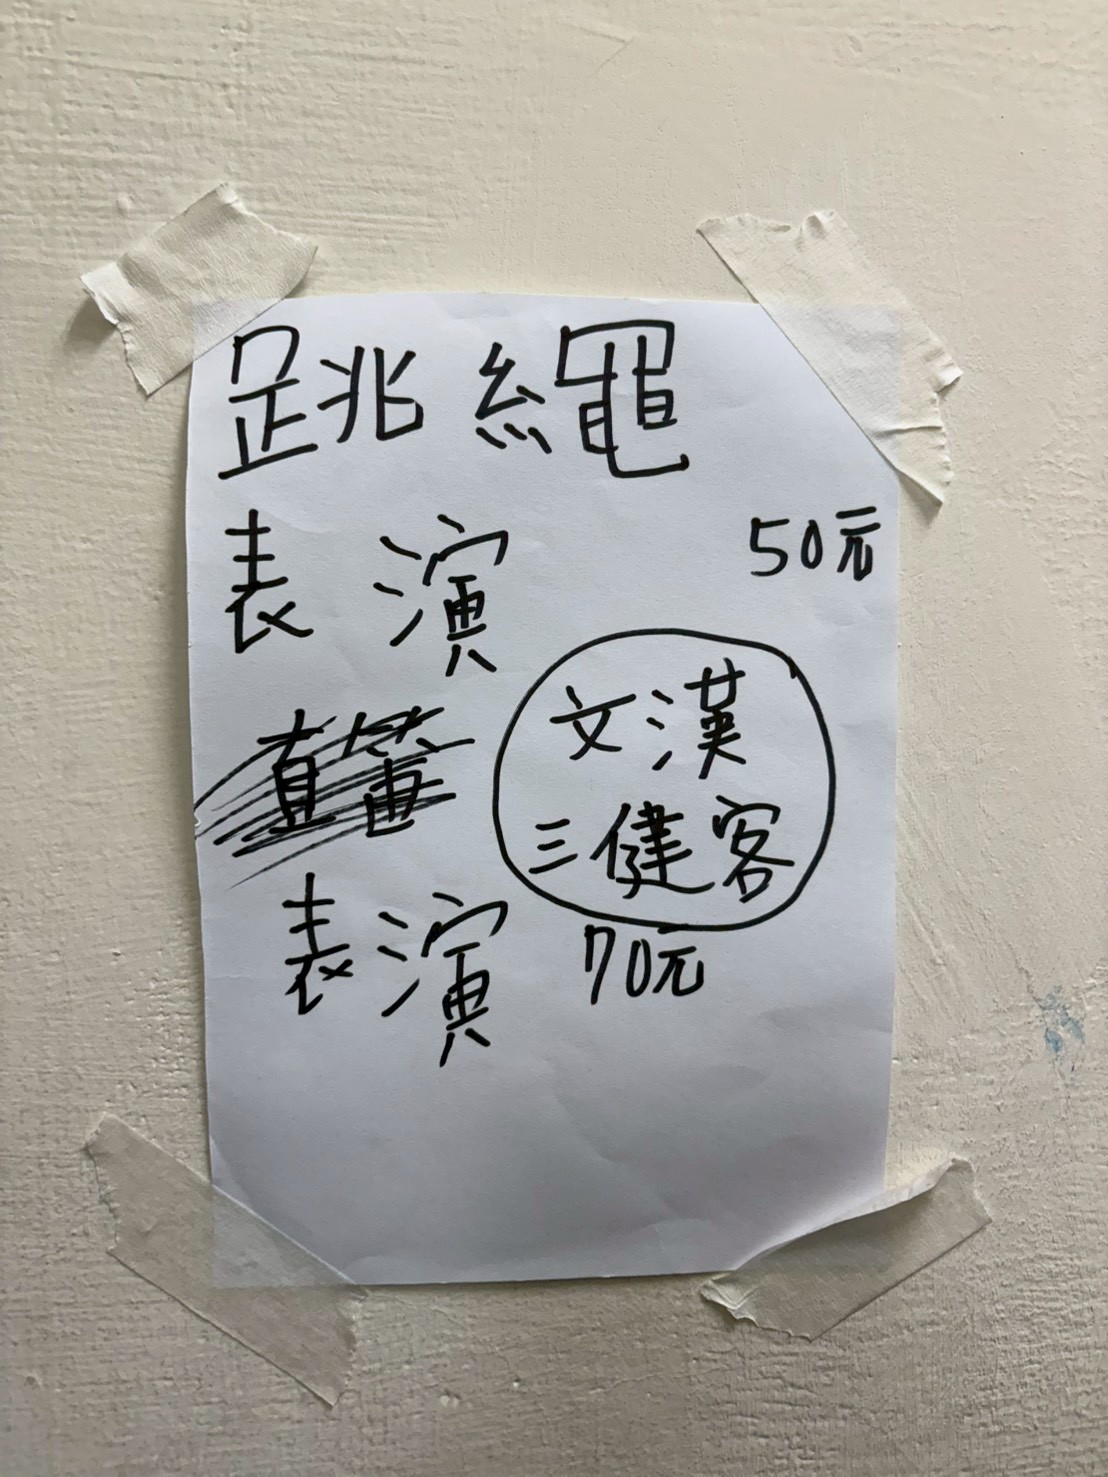 跳繩
表演
50元
文漢
三健客
表演
70元